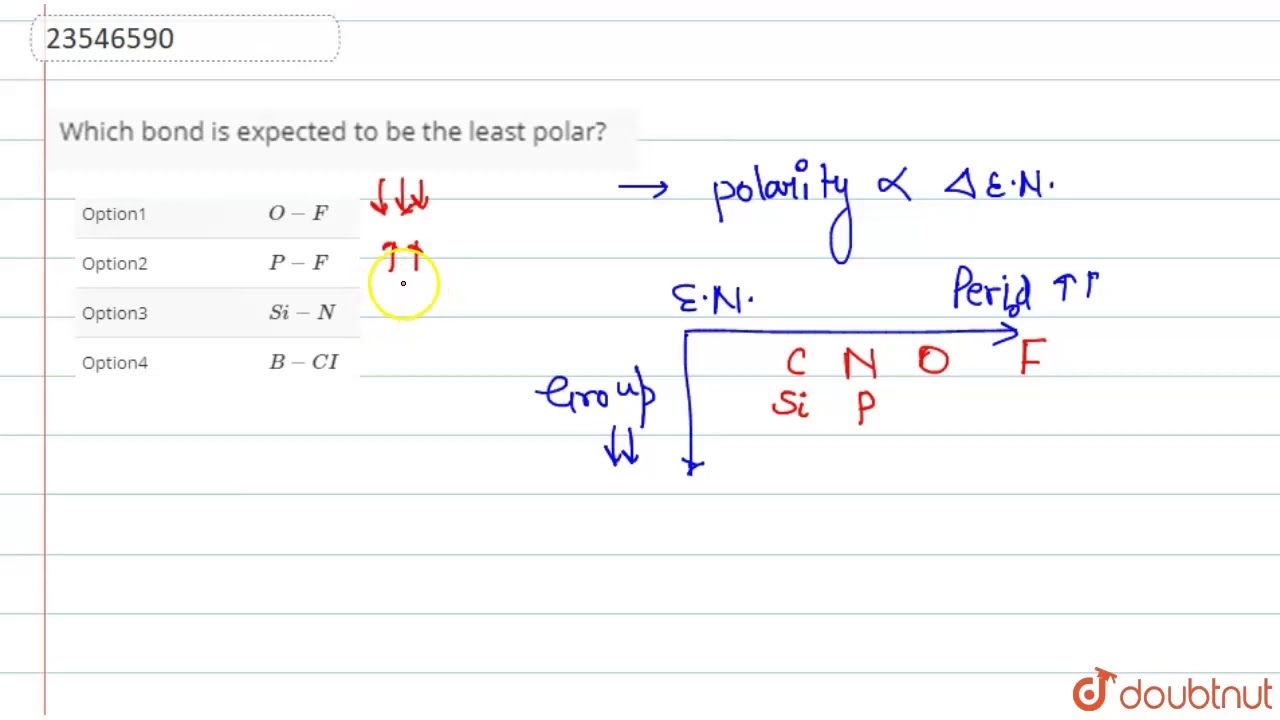 23546590
Which bond is expected to be the least polar?
→ polarity ∝ Δ E.N.
Option1 O − F ↓↓↓
Option2 P − F ↑↑
Option3 Si − N
Option4 B − CI
E.N.
Period ↑↑
C N O F
Group ↓↓
Si P
doubtnut